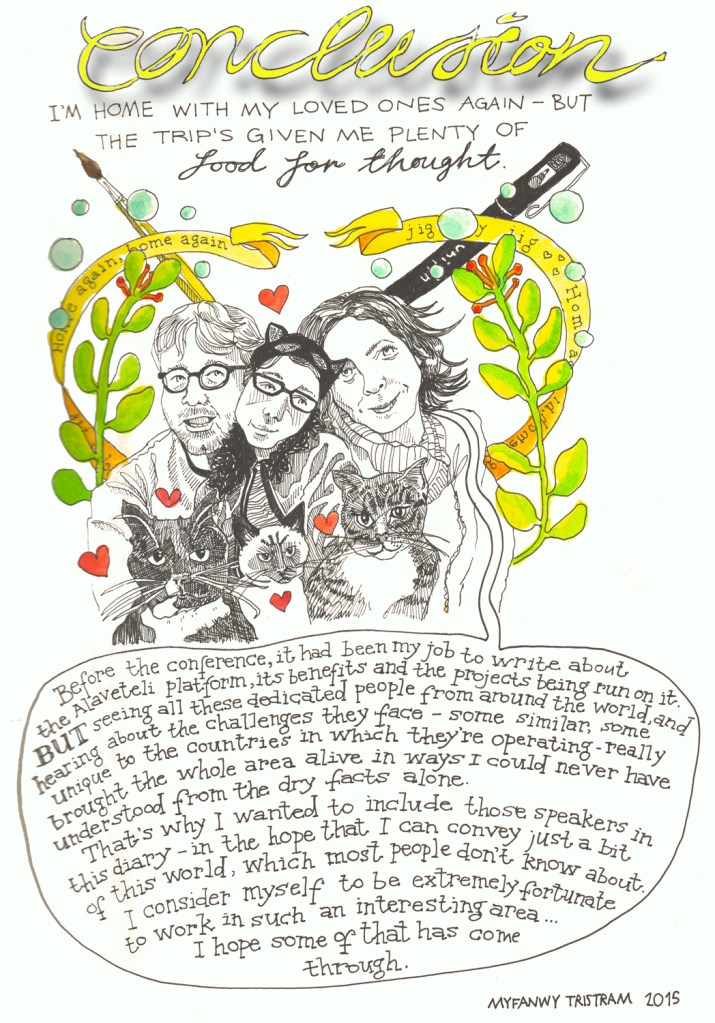 conclusion
I'M HOME WITH MY LOVED ONES AGAIN - BUT
THE TRIP'S GIVEN ME PLENTY OF
food for thought.
Home again, home again
jig y jig
Home a
uni
Before the conference, it had been my job to write about
the Alaveteli platform, its benefits and the projects being run on it.
BUT seeing all these dedicated people from around the world, and
hearing about the challenges they face - some similar, some
unique to the countries in which they're operating - really
brought the whole area alive in ways I could never have
understood from the dry facts alone.
That's why I wanted to include those speakers in
this diary - in the hope that I can convey just a bit
of this world, which most people don't know about.
I consider myself to be extremely fortunate
to work in such an interesting area...
I hope some of that has come
through.
MYFANWY TRISTRAM 2015